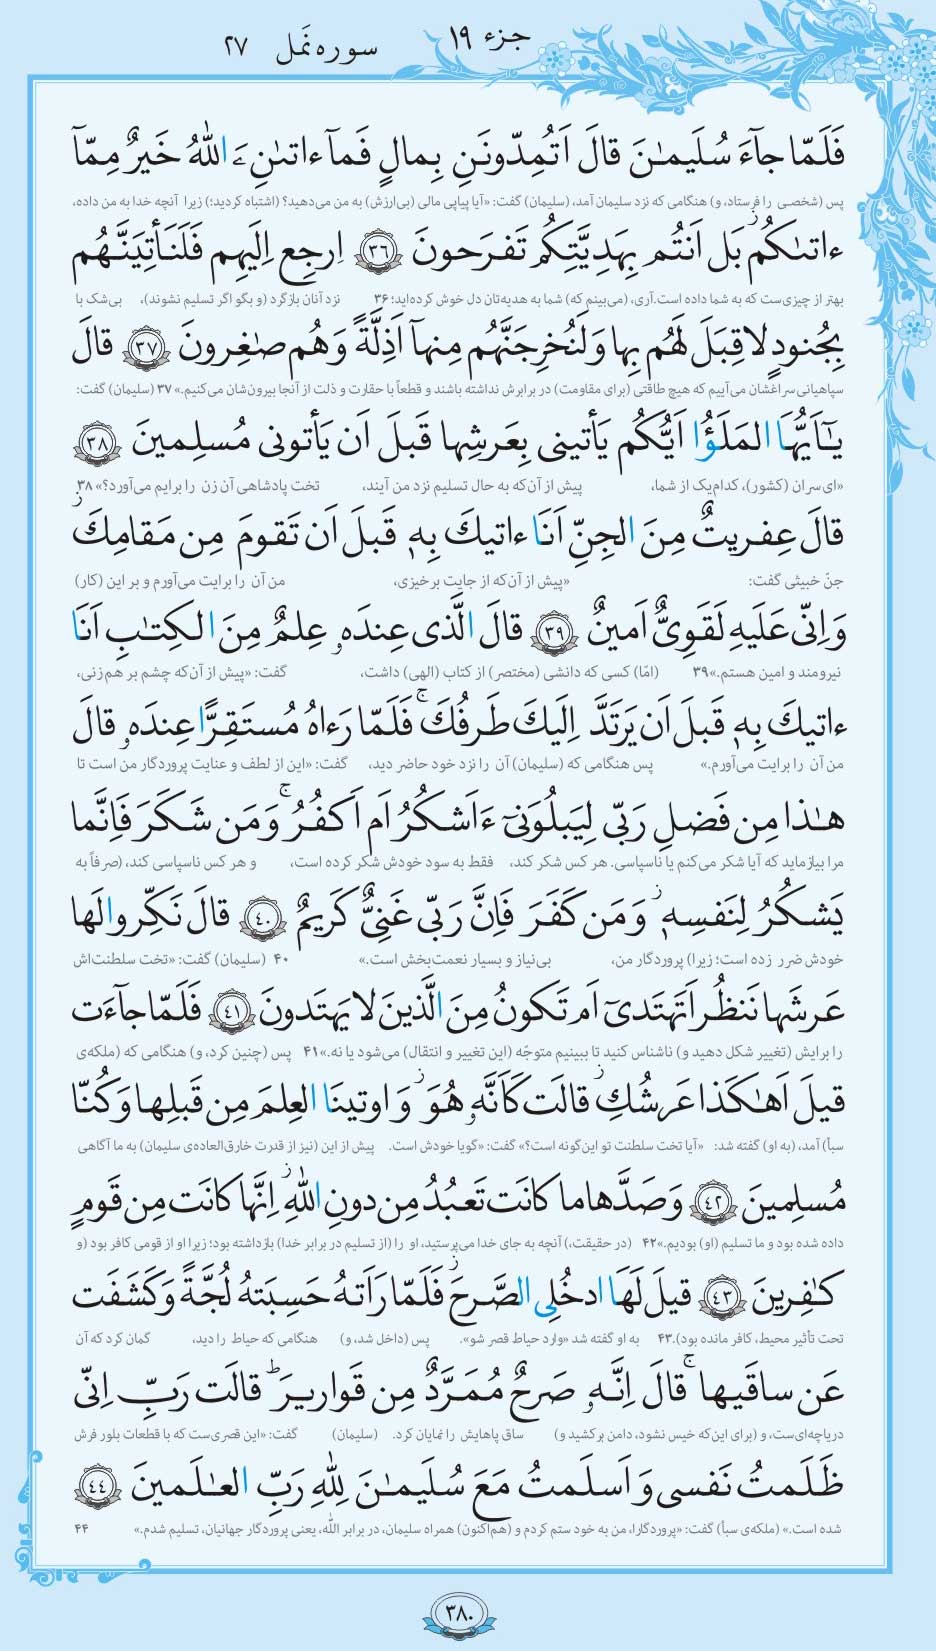 جزء ۱۹ سوره نَمل ۲۷
فَلَمّا جآءَ سُلَیمـٰنَ قالَ اَتُمِدّونَنِ بِمالٍ فَمآ ءاتىٰنِۦَ اللّٰهُ خَیرٌ مِمّآ
پس (شخصی را فرستاد، و) هنگامی که نزد سلیمان آمد، (سلیمان) گفت: «آیا پیاپی مالی (بی‌ارزش) به من می‌دهید؟ (اشتباه کردید؛) زیرا آنچه خدا به من داده،
ءاتىٰكُم ۚز بَل اَنتُم بِهَدِیَّتِكُم تَفرَحونَ ﴿۳۶﴾ اِرجِع اِلَیهِم فَلَنَأتِیَنَّهُم
بهتر از چیزی‌ست که به شما داده است. آری، (می‌بینم که) شما به هدیه‌تان دل خوش کرده‌اید؛ ۳۶ نزد آنان بازگرد (و بگو اگر تسلیم نشوند)، بی‌شک با
بِجُنودٍ لا قِبَلَ لَهُم بِها وَ لَنُخرِجَنَّهُم مِنهآ اَذِلَّةً وَ هُم صـٰغِرونَ ﴿۳۷﴾ قالَ
سپاهیانی سراغشان می‌آییم که هیچ طاقتی (برای مقاومت) در برابرش نداشته باشند و قطعاً با حقارت و ذلت از آنجا بیرون‌شان می‌کنیم.» ۳۷ (سلیمان) گفت:
یـٰٓاَیُّهَا المَلَؤُا اَیُّكُم یَأتینی بِعَرشِها قَبلَ اَن یَأتونی مُسلِمینَ ﴿۳۸﴾
«ای سران (کشور)، کدام‌یک از شما، پیش از آن‌که به حال تسلیم نزد من آیند، تخت پادشاهی آن زن را برایم می‌آورد؟» ۳۸
قالَ عِفریتٌ مِنَ الجِنِّ اَنَا ءاتیكَ بِهٖ قَبلَ اَن تَقومَ مِن مَقامِكَ ز
جنّ خبیثی گفت: «پیش از آن‌که از جایت برخیزی، من آن را برایت می‌آورم و بر این (کار)
وَ اِنّی عَلَیهِ لَقَوِیٌّ اَمینٌ ﴿۳۹﴾ قالَ الَّذی عِندَهٗ عِلمٌ مِنَ الكِتـٰبِ اَنَا
نیرومند و امین هستم.» ۳۹ (امّا) کسی که دانشی (مختصر) از کتاب (الهی) داشت، گفت: «پیش از آن‌که چشم بر هم زنی،
ءاتیكَ بِهٖ قَبلَ اَن یَرتَدَّ اِلَیكَ طَرفُكَ ۚ فَلَمّا رَءاهُ مُستَقِرًّا عِندَهٗ قالَ
من آن را برایت می‌آورم.» پس هنگامی که (سلیمان) آن را نزد خود حاضر دید، گفت: «این از لطف و عنایت پروردگار من است تا
هـٰذا مِن فَضلِ رَبّی لِیَبلُوَنیٓ ءَاَشكُرُ اَم اَكفُرُ ۚ وَ مَن شَكَرَ فَاِنَّما
مرا بیازماید که آیا شکر می‌کنم یا ناسپاسی. هر کس شکر کند، فقط به سود خودش شکر کرده است، و هر کس ناسپاسی کند، (صرفاً به
یَشكُرُ لِنَفسِهٖ ز وَ مَن كَفَرَ فَاِنَّ رَبّی غَنِیٌّ كَریمٌ ﴿۴۰﴾ قالَ نَكِّروا لَها
خودش ضرر زده است؛ زیرا) پروردگار من، بی‌نیاز و بسیار نعمت‌بخش است.» ۴۰ (سلیمان) گفت: «تخت سلطنت‌اش
عَرشَها نَنظُر اَتَهتَدیٓ اَم تَكونُ مِنَ الَّذینَ لا یَهتَدونَ ﴿۴۱﴾ فَلَمّا جآءَت
را برایش (تغییر شکل دهید و) ناشناس کنید تا ببینیم متوجّه (این تغییر و انتقال) می‌شود یا نه.» ۴۱ پس (چنین کرد، و) هنگامی که (ملکه‌ی
قیلَ اَهـٰكَذا عَرشُكِ ز قالَت كَاَنَّهٗ هُوَ ز وَ اوتینَا العِلمَ مِن قَبلِها وَ كُنّا
سبأ) آمد، (به او) گفته شد: «آیا تخت سلطنت تو این‌گونه است؟» گفت: «گویا خودش است. پیش از این (نیز از قدرت خارق‌العاده‌ی سلیمان) به ما آگاهی
مُسلِمینَ ﴿۴۲﴾ وَ صَدَّها ما كانَت تَعبُدُ مِن دونِ اللّٰهِ ز اِنَّها كانَت مِن قَومٍ
داده شده بود و ما تسلیم (او) بودیم.» ۴۲ (در حقیقت،) آنچه به جای خدا می‌پرستید، او را (از تسلیم در برابر خدا) بازداشته بود؛ زیرا او از قومی کافر بود (و
كـٰفِرینَ ﴿۴۳﴾ قیلَ لَهَا ادخُلِی الصَّرحَ ز فَلَمّا رَاَتهُ حَسِبَتهُ لُجَّةً وَ كَشَفَت
تحت تأثیر محیط، کافر مانده بود). ۴۳ به او گفته شد «وارد حیاط قصر شو». پس (داخل شد، و) هنگامی که حیاط را دید، گمان کرد که آن
عَن ساقَیها ۚ قالَ اِنَّهٗ صَرحٌ مُمَرَّدٌ مِن قَواریرَ ؕ قالَت رَبِّ اِنّی
دریاچه‌ای‌ست، و (برای این‌که خیس نشود، دامن برکشید و) ساق پاهایش را نمایان کرد. (سلیمان) گفت: «این قصری‌ست که با قطعات بلور فرش
ظَلَمتُ نَفسی وَ اَسلَمتُ مَعَ سُلَیمـٰنَ لِلّٰهِ رَبِّ العـٰلَمینَ ﴿۴۴﴾
شده است.» (ملکه‌ی سبأ) گفت: «پروردگارا، من به خود ستم کردم و (هم‌اکنون) همراه سلیمان، در برابر الله، یعنی پروردگار جهانیان، تسلیم شدم.» ۴۴
۳۸۰